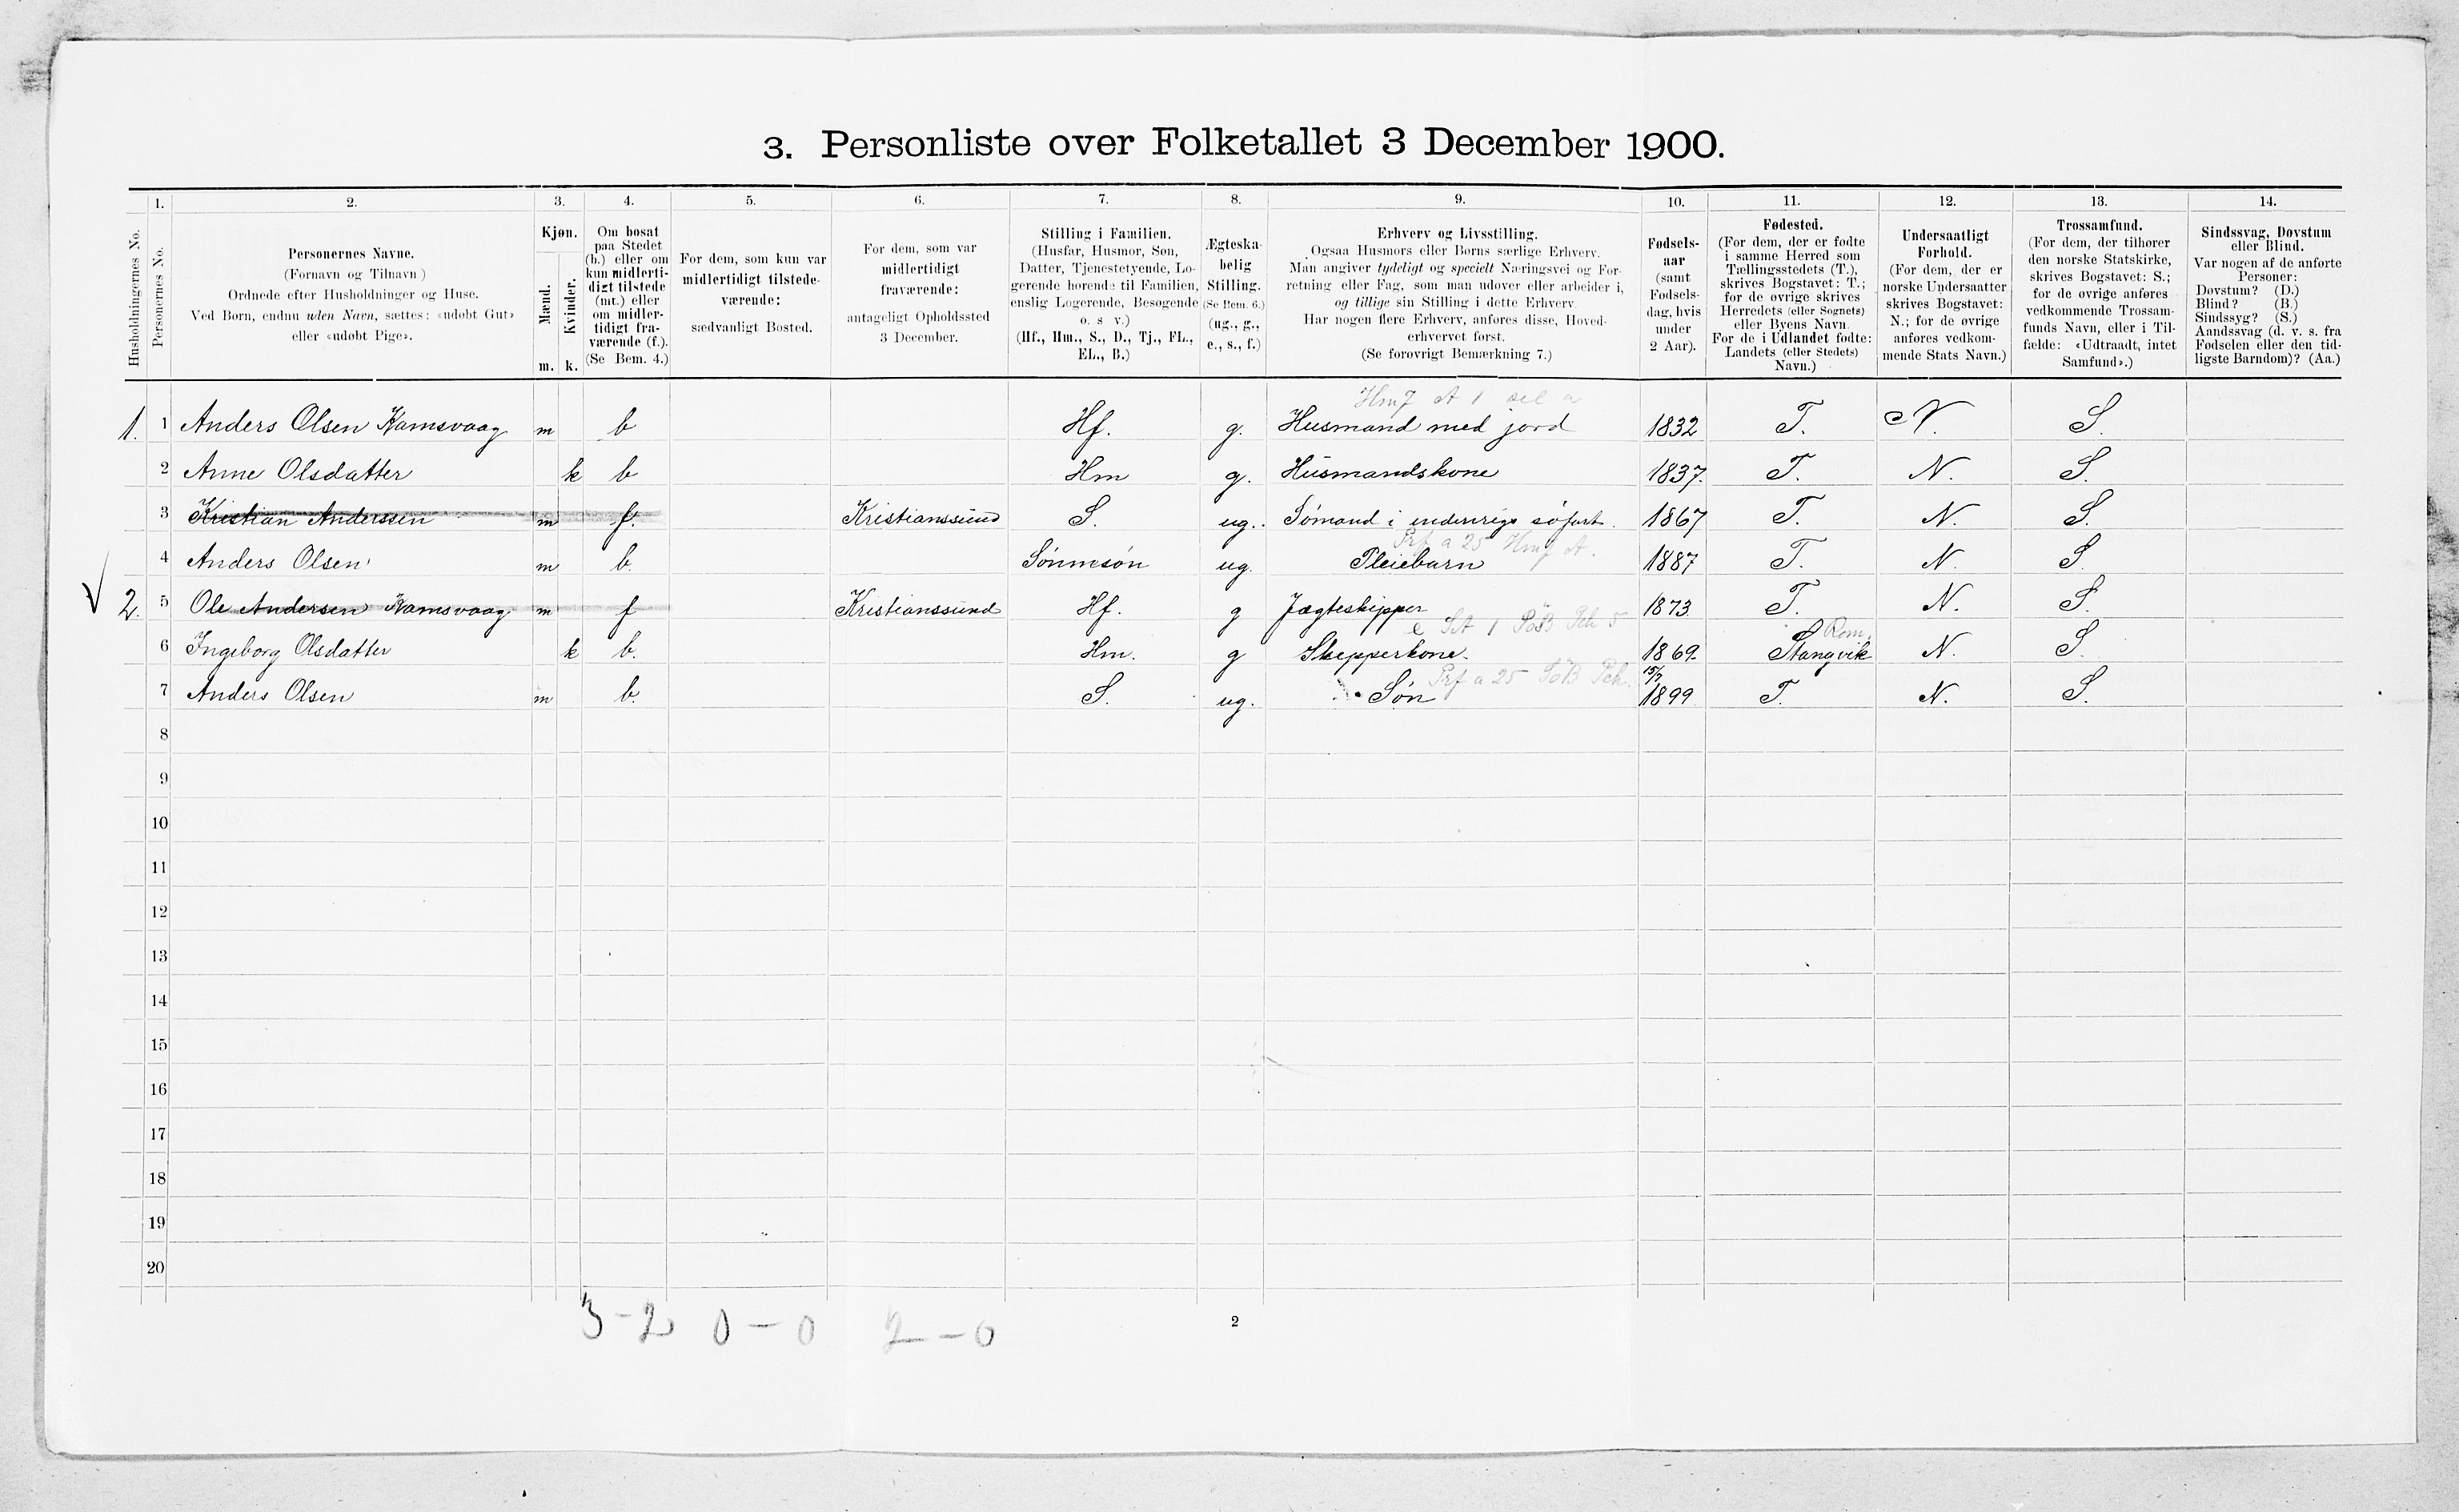 3. Personliste over Folketallet 3 December 1900.
1. 2. 3. 4. 5. 6. 7. 8. 9. 10. 11. 12. 13. 14.
Husholdningernes No.
Personernes No.
Personernes Navne.
(Fornavn og Tilnavn)
Ordnede efter Husholdninger og Huse.
Ved Børn, endnu uden Navn, sættes: «udøbt Gut»
eller «udøbt Pige».
Kjøn.
Mænd.
Kvinder.
m. k.
Om bosat
paa Stedet
(b.) eller om
kun midlerti-
digt tilstede
(mt.) eller
om midler-
tidigt fra-
værende (f.).
(Se Bem. 4.)
For dem, som kun var
midlertidigt tilstede-
værende:
sædvanligt Bosted.
For dem, som var
midlertidigt
fraværende:
antageligt Opholdssted
3 December.
Stilling i Familien.
(Husfar, Husmor, Søn,
Datter, Tjenestetyende, Lo-
gerende hørende til Familien,
enslig Logerende, Besøgende
o. s. v.)
(Hf., Hm., S., D., Tj., FL.,
EL., B.)
Ægteska-
belig
Stilling.
(Se Bem. 6.)
(ug., g.,
e., s., f.)
Erhverv og Livsstilling.
Ogsaa Husmors eller Børns særlige Erhverv.
Man angiver tydeligt og specielt Næringsvei og For-
retning eller Fag, som man udøver eller arbeider i,
og tillige sin Stilling i dette Erhverv.
Har nogen flere Erhverv, anføres disse, Hoved-
erhvervet først.
(Se forøvrigt Bemærkning 7.)
Fødsels-
aar
(samt
Fødsels-
dag, hvis
under
2 Aar).
Fødested.
(For dem, der er fødte
i samme Herred som
Tællingsstedets (T.),
skrives Bogstavet: T.;
for de øvrige skrives
Herredets (eller Sognets)
eller Byens Navn.
For de i Udlandet fødte:
Landets (eller Stedets)
Navn.)
Undersaatligt
Forhold.
(For dem, der er
norske Undersaatter
skrives Bogstavet:
N.; for de øvrige
anføres vedkom-
mende Stats Navn.)
Trossamfund.
(For dem, der tilhører
den norske Statskirke,
skrives Bogstavet: S.;
for de øvrige anføres
vedkommende Trossam-
funds Navn, eller i Til-
fælde: «Udtraadt, intet
Samfund».)
Sindssvag, Døvstum
eller Blind.
Var nogen af de anførte
Personer:
Døvstum? (D.)
Blind? (B.)
Sindssyg? (S.)
Aandssvag (d. v. s. fra
Fødselen eller den tid-
ligste Barndom)? (Aa.)
1. 1 Anders Olsen Kamsvaag m b Hf. g. Husmand med jord 1832 T. N. S.
2 Anne Olsdatter k b Hm g. Husmandskone 1837. T. N. S.
3 Kristian Anderssen m f. Kristianssund S. ug. Sømand i indenrigs søfart. 1867 T. N. S.
4 Anders Olsen m b. Sønnesøn ug. Pleiebarn 1887 T. N. S.
2. 5 Ole Andersen Kamsvaag m f Kristianssund Hf. g Jægteskipper 1873 T. N. S.
6 Ingeborg Olsdatter k b. Hm. g Skepperkone. 1869 Stangvik Rom. N. S.
7 Anders Olsen m b. S. ug. Søn 15/7 1899 T. N. S.
8
9
10
11
12
13
14
15
16
17
18
19
20
3-2 0-0 2-0
2